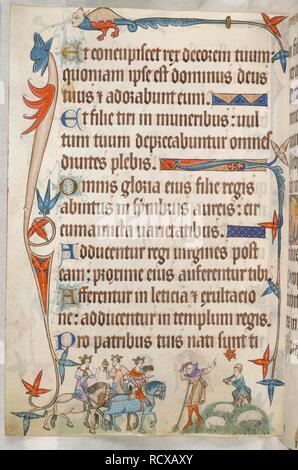 Et concupiscet rex decorem tuum
quoniam ipse est dominus deus
tuus & adorabunt eum.
Et filie tiri in muneribus: uul
tum tuum deprecabuntur omnes
diuites plebis.
Omnis gloria eius filie regis
abintus in fimbriis aureis: cir
cumamicta uarietatibus.
Adducentur regi uirgines post
eam: proxime eius afferentur tibi
Afferentur in leticia & exultacio
ne: adducentur in templum regis.
Pro patribus tuis nati sunt ti